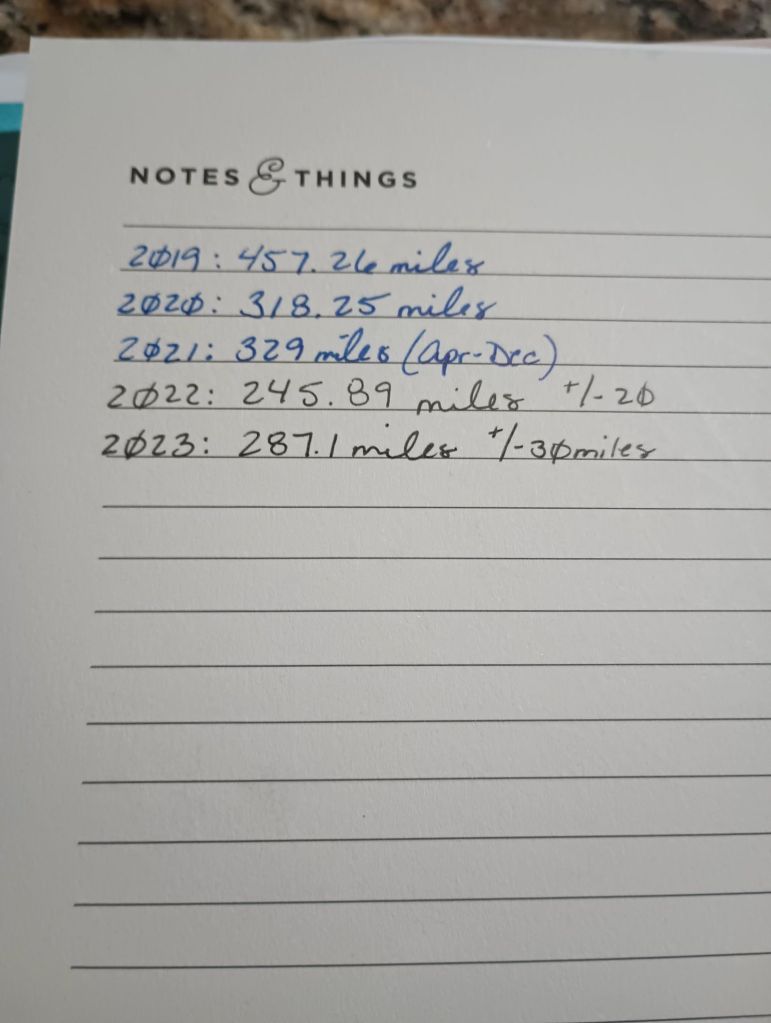 NOTES & THINGS
2019: 457.26 miles
2020: 318.25 miles
2021: 329 miles (Apr-Dec)
2022: 245.89 miles +/- 20
2023: 287.1 miles +/- 30 miles